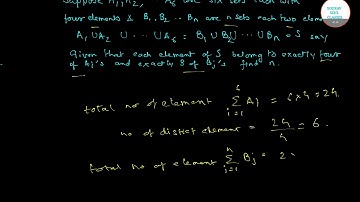 Suppose A₁, A₂, A₆ are six sets each with
four elements & B₁, B₂ ... Bn are n sets each two element
A₁ ∪ A₂ ∪ ... ∪ A₆ = B₁ ∪ B₂ ∪ ... ∪ Bn = S say
Given that each element of S belong to exactly four
of Aj's and exactly 3 of Bj's find n.
total no of element Σ Aj = 6×4 = 24.
no of distict element = 24/4 = 6.
total no of element Σ Bj = 2